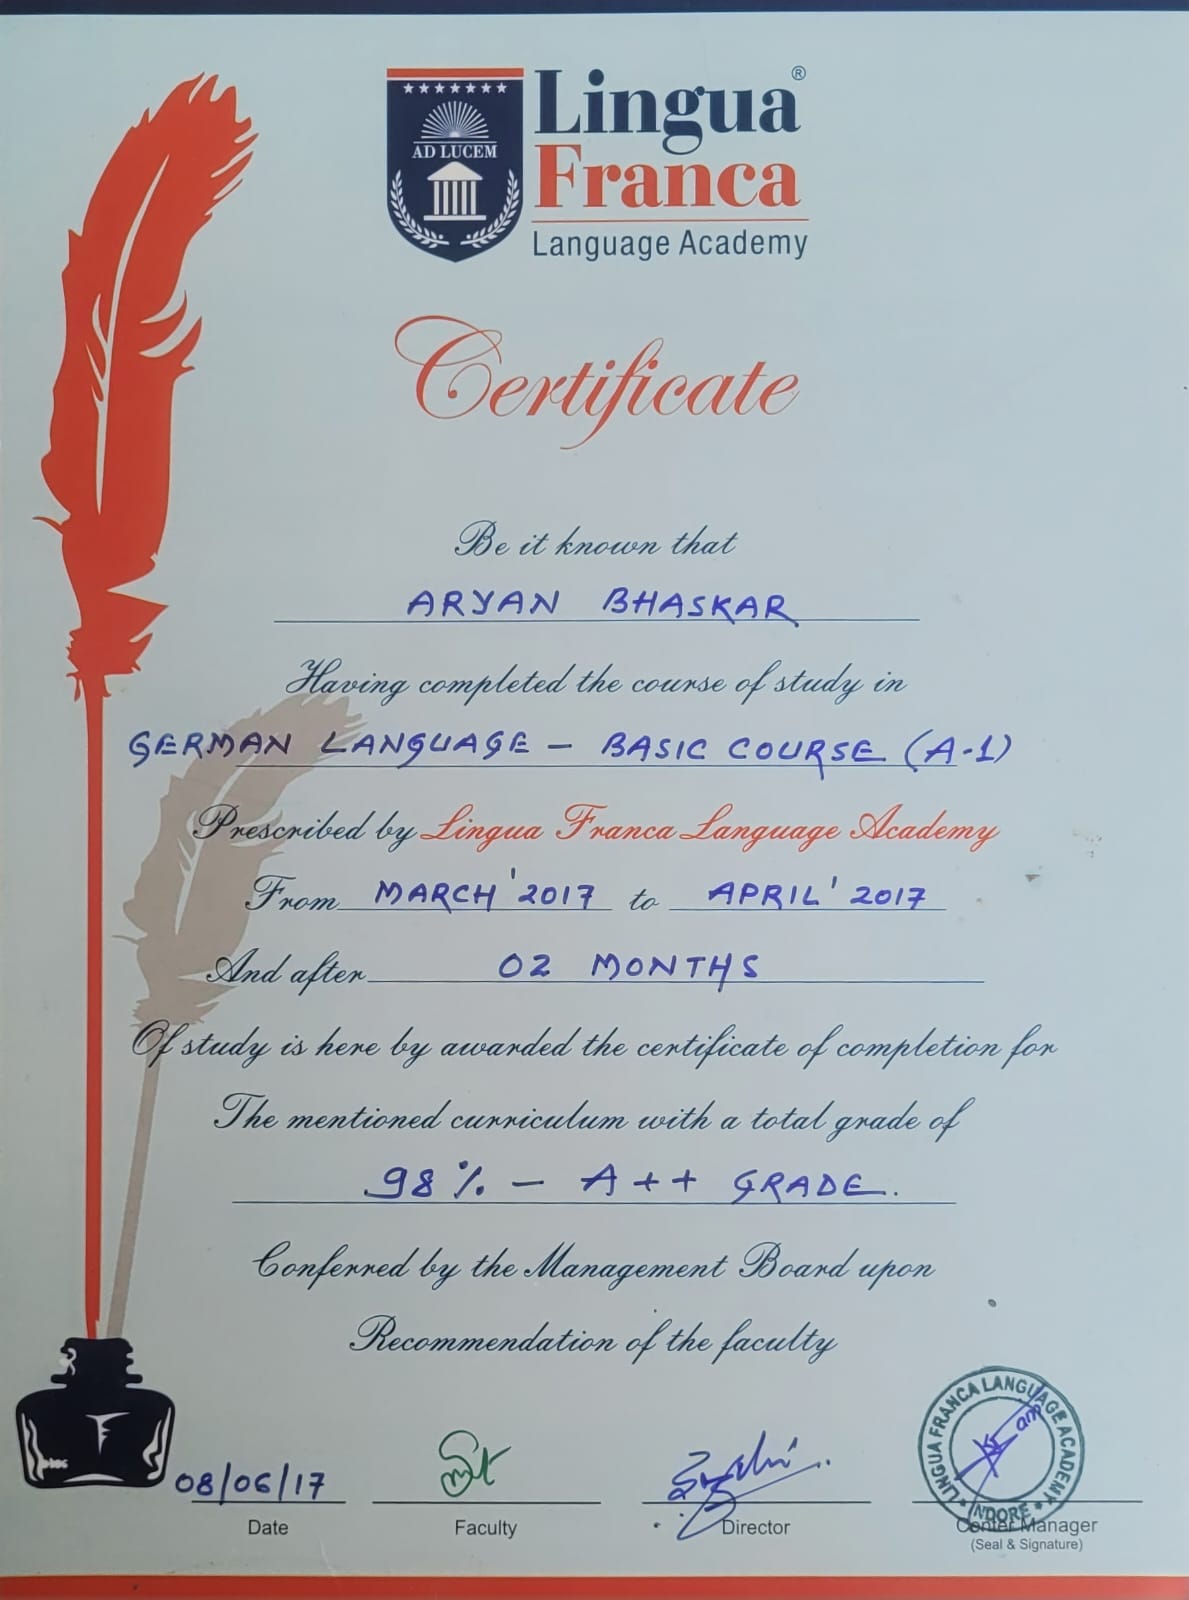 Lingua®
Franca
Language Academy
AD LUCEM
Certificate
Be it known that
ARYAN BHASKAR
Having completed the course of study in
GERMAN LANGUAGE - BASIC COURSE (A-1)
Prescribed by Lingua Franca Language Academy
From MARCH'2017 to APRIL'2017
And after 02 MONTHS
Of study is here by awarded the certificate of completion for
The mentioned curriculum with a total grade of
98% - A++ GRADE.
Conferred by the Management Board upon
Recommendation of the faculty
LINGUA FRANCA LANGUAGE ACADEMY
INDORE
08/06/17
Date Faculty Director Center Manager
(Seal & Signature)